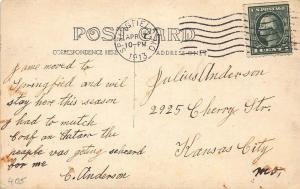 POST CARD
CORRESPONDENCE HERE
SPRINGFIELD
APR
10-PM
1913
U.S. POSTAGE
1 CENT
Jame moved to
Springfied and will
stay here this season
I had to mutch
on
the
people was going
for me
C. Anderson
Julius Anderson
2925 Cherry Str.
Kansas City
Mo.
405